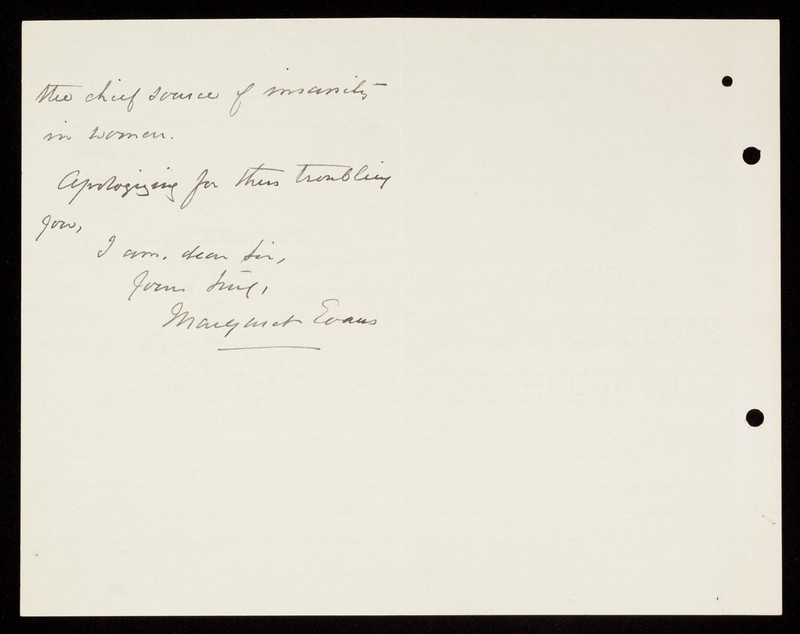 the chief source of insanity
in women.
Apologizing for thus troubling
you,
I am, dear Sir,
yours truly,
Margaret Evans